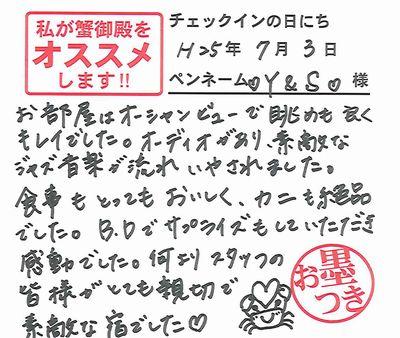 私が蟹御殿を
オススメ
します!!
チェックインの日にち
H25年 7月 3日
ペンネーム♡Y&S♡様
お部屋はオーシャンビューで眺めも良く
キレイでした。オーディオがあり、素敵な
ジャズ音楽が流れいやされました。
食事もとってもおいしく、カニも絶品
でした。B.Dでサプライズもしていただき
感動でした。何よりスタッフの
皆様がとても親切で
素敵な宿でした♡
お墨
つき